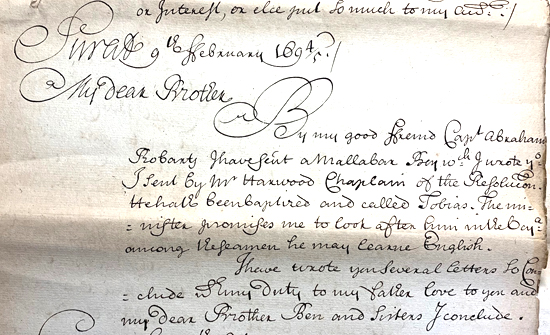 or Interest, or else put so much to my acct: /
Suratt 9th ffebruary 1694/5 /
My dear Brother
By my good ffreind Capt Abraham
Robarts I have sent a Mallabar Boy wch I wrote yo
I sent by Mr Harwood Chaplain of the Resolucon.
He hath been baptized and called Tobias. The mi-
= nister promises me to look after him in the voya
among the seamen he may learne English.
I have wrote you several letters so Con-
= clude wth my duty to my father love to you and
my dear Brother Ben and Sisters I conclude.